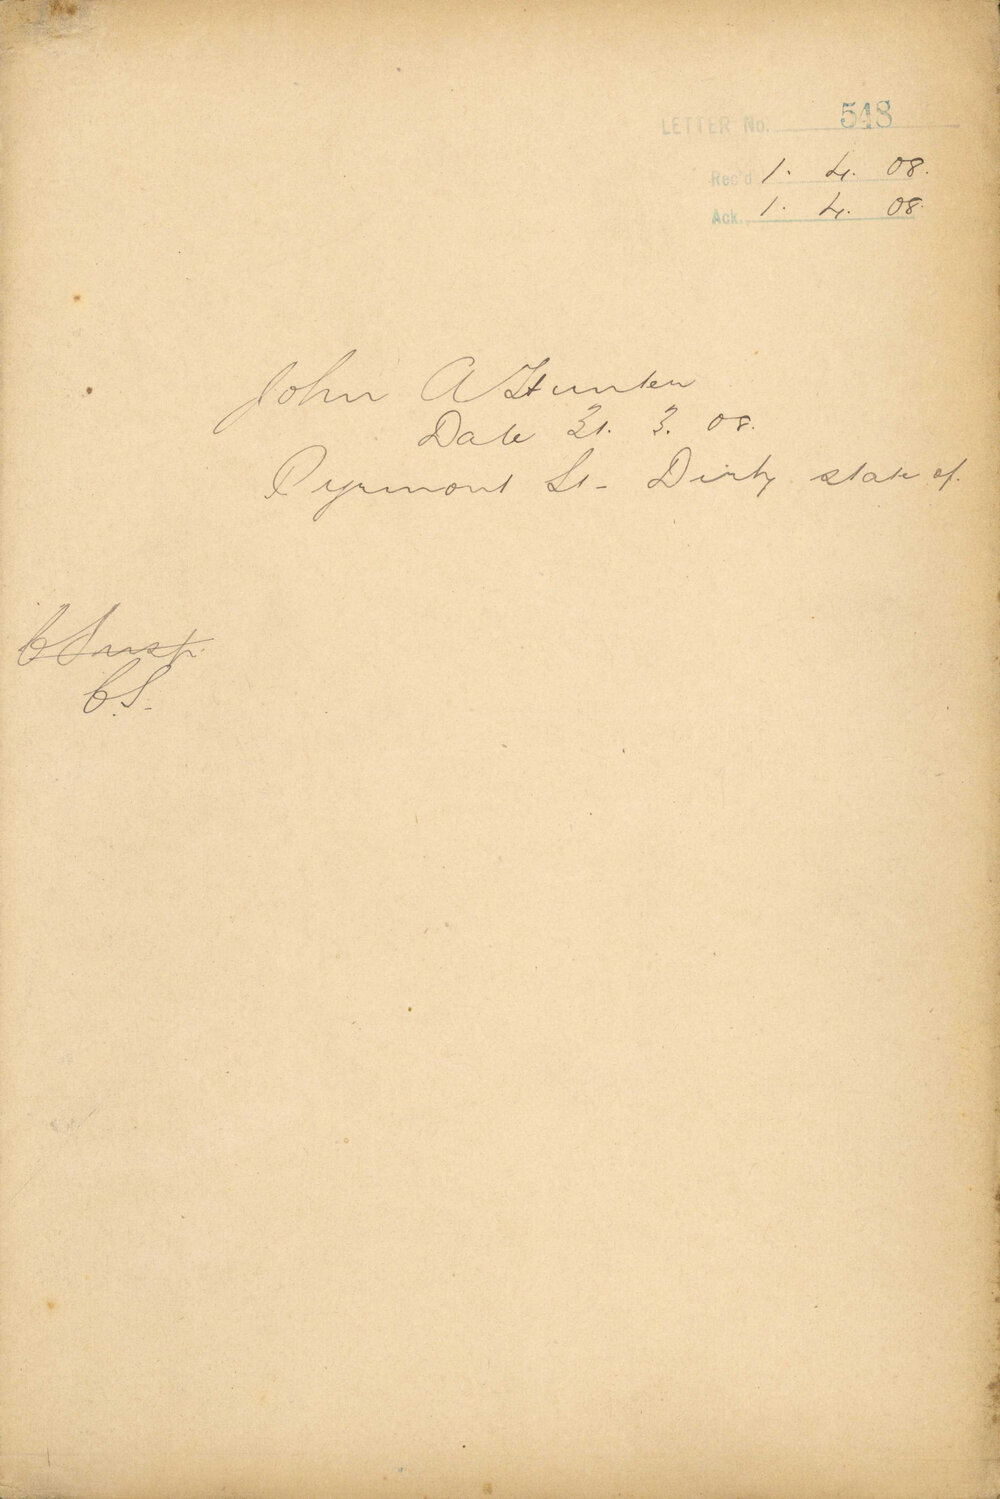 LETTER No. 548
Rec'd 1. 4. 08.
Ack. 1. 4. 08.
John A Hunter
Date 31. 3. 08.
Pyrmont St - Dirty state of.
C S Insp.
C.S.